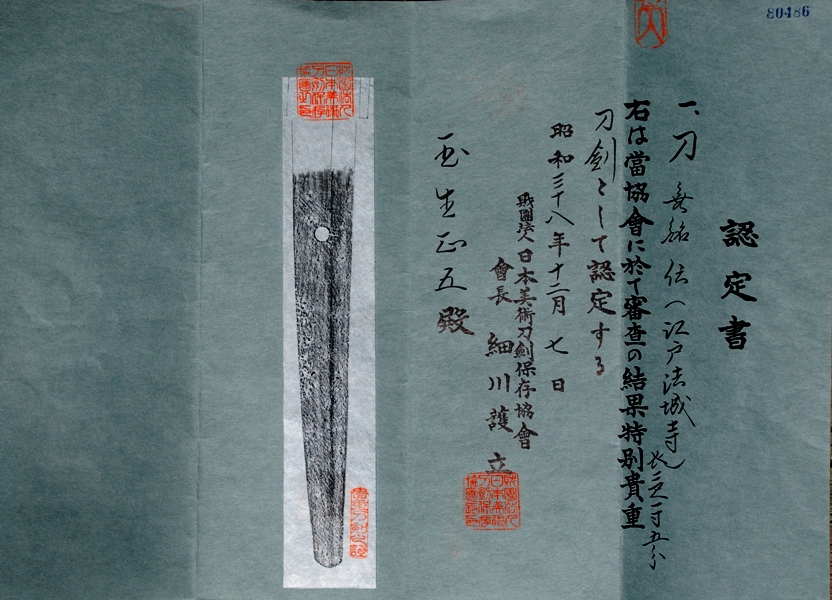 80486
認定書
一、刀 無銘 伝へ江戸法城寺 長さ二尺一寸五分
右は當協會に於て審査の結果特別貴重
刀劍として認定する
昭和三十八年十二月七日
財團法人日本美術刀劍保存協會
會長 細川護立
生正五殿